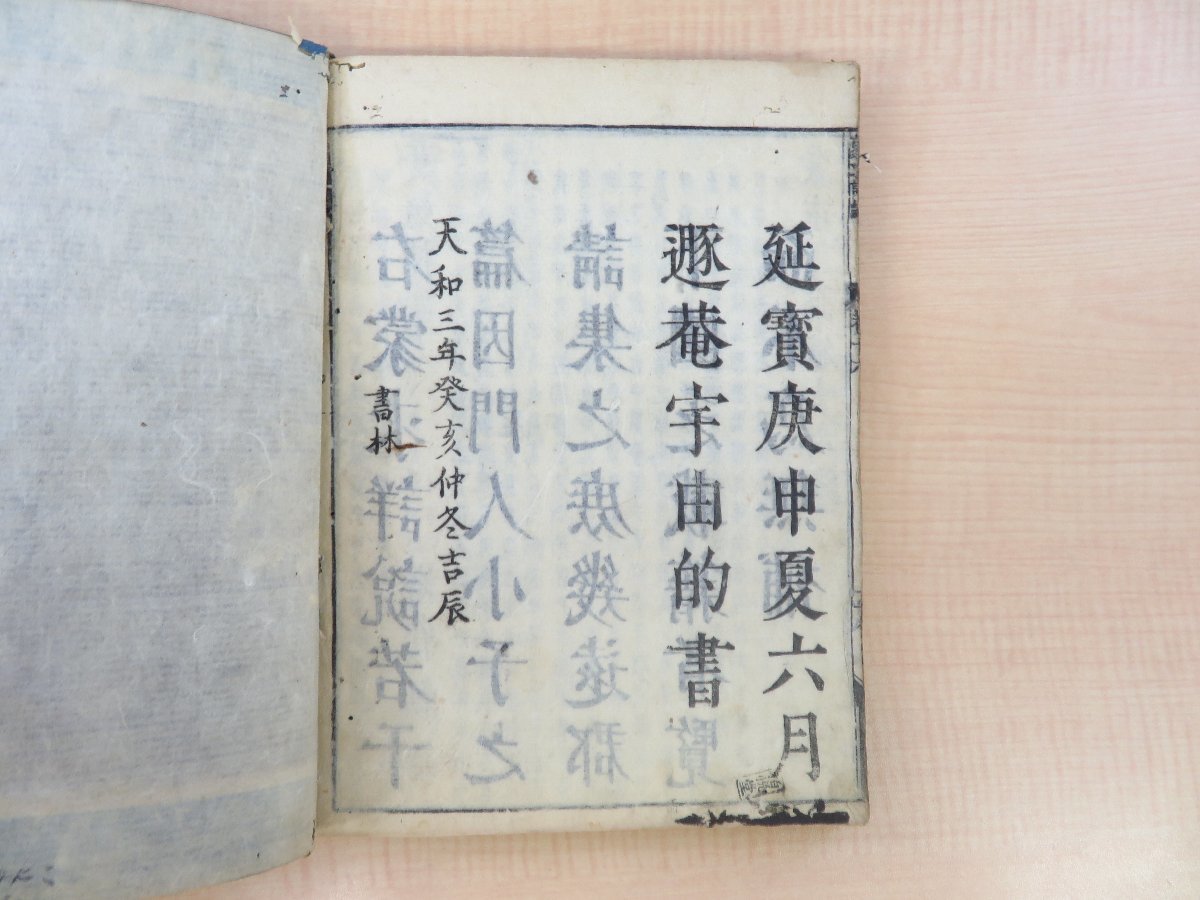 延寶庚申夏六月
遯菴宇由的書
天和三年癸亥仲冬吉辰
書林